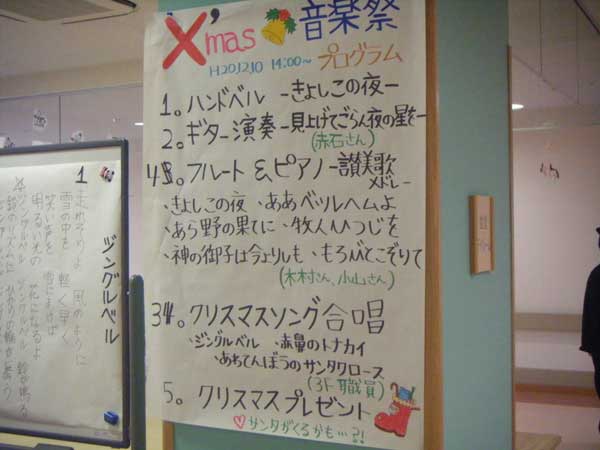 X'mas 音楽祭
H20.12.10 14:00～ プログラム
1。ハンドベル －きよしこの夜－
2。ギター演奏－見上げてごらん夜の星を－
(赤石さん)
4。フルート&ピアノ－讃美歌
メドレー
・きよしこの夜 ・ああベツレヘムよ
・あら野の果てに ・牧人ひつじを
・神の御子は今よりしも ・もろびとこぞりて
(木村さん、小山さん)
3。クリスマスソング合唱
・ジングルベル ・赤鼻のトナカイ
・あわてんぼうのサンタクロース
(3F職員)
5。クリスマスプレゼント
♡サンタがくるかも…?!
ジングルベル
1 走れそりよ 風のように
雪の中を 軽く早く
笑い声を 雪にまけば
明るい光の 花になるよ
ジングルベル ジングルベル 鈴が鳴る